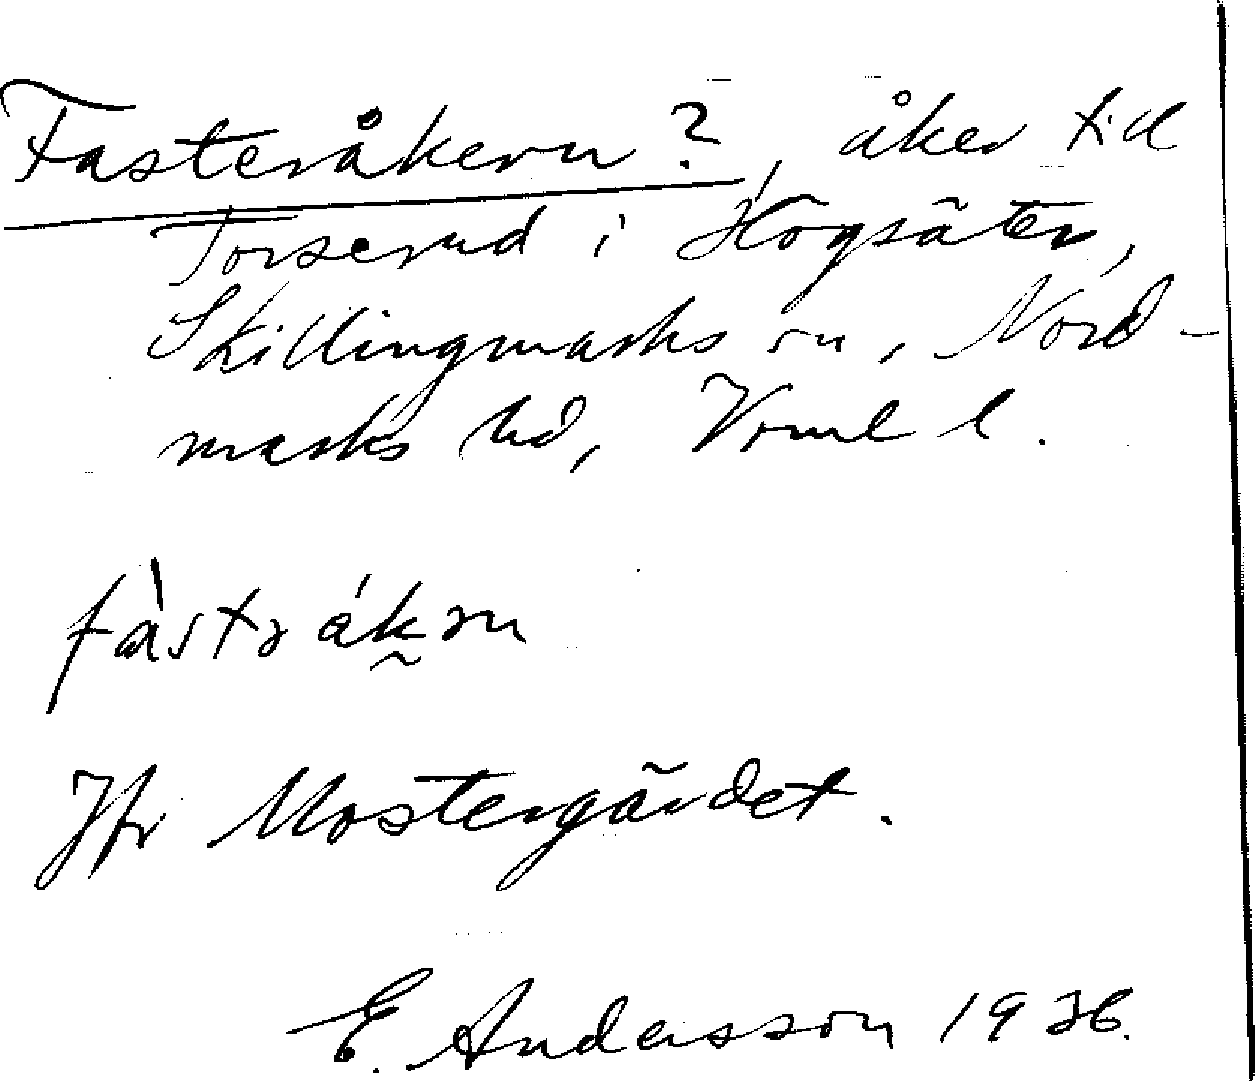 Fasteråkern?, åker till
Torserud i Högsäter,
Skillingmarks sn, Nord-
marks hd, Vrml l.
fàstråkrn
Jfr Mostergärdet.
E. Andersson 1936.